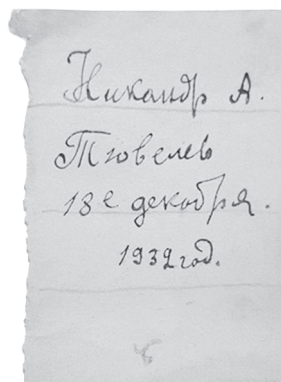 Никандр А.
Тювелев
18е декабря.
1932 год.